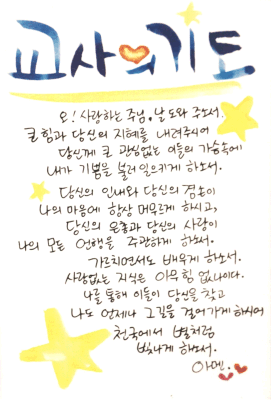 교사의 기도
오! 사랑하는 주님, 날 도와 주소서.
큰 힘과 당신의 지혜를 내려주시어
당신께 큰 관심없는 이들의 가슴속에
내가 기쁨을 불러 일으키게 하소서.
당신의 인내와 당신의 겸손이
나의 마음에 항상 머무르게 하시고,
당신의 은총과 당신의 사랑이
나의 모든 언행을 주관하게 하소서.
가르치면서도 배우게 하소서.
사랑없는 지식은 아무 힘 없나이다.
나를 통해 이들이 당신을 찾고
나도 언제나 그길을 걸어가게 하시어
천국에서 별처럼
빛나게 하소서.
아멘.